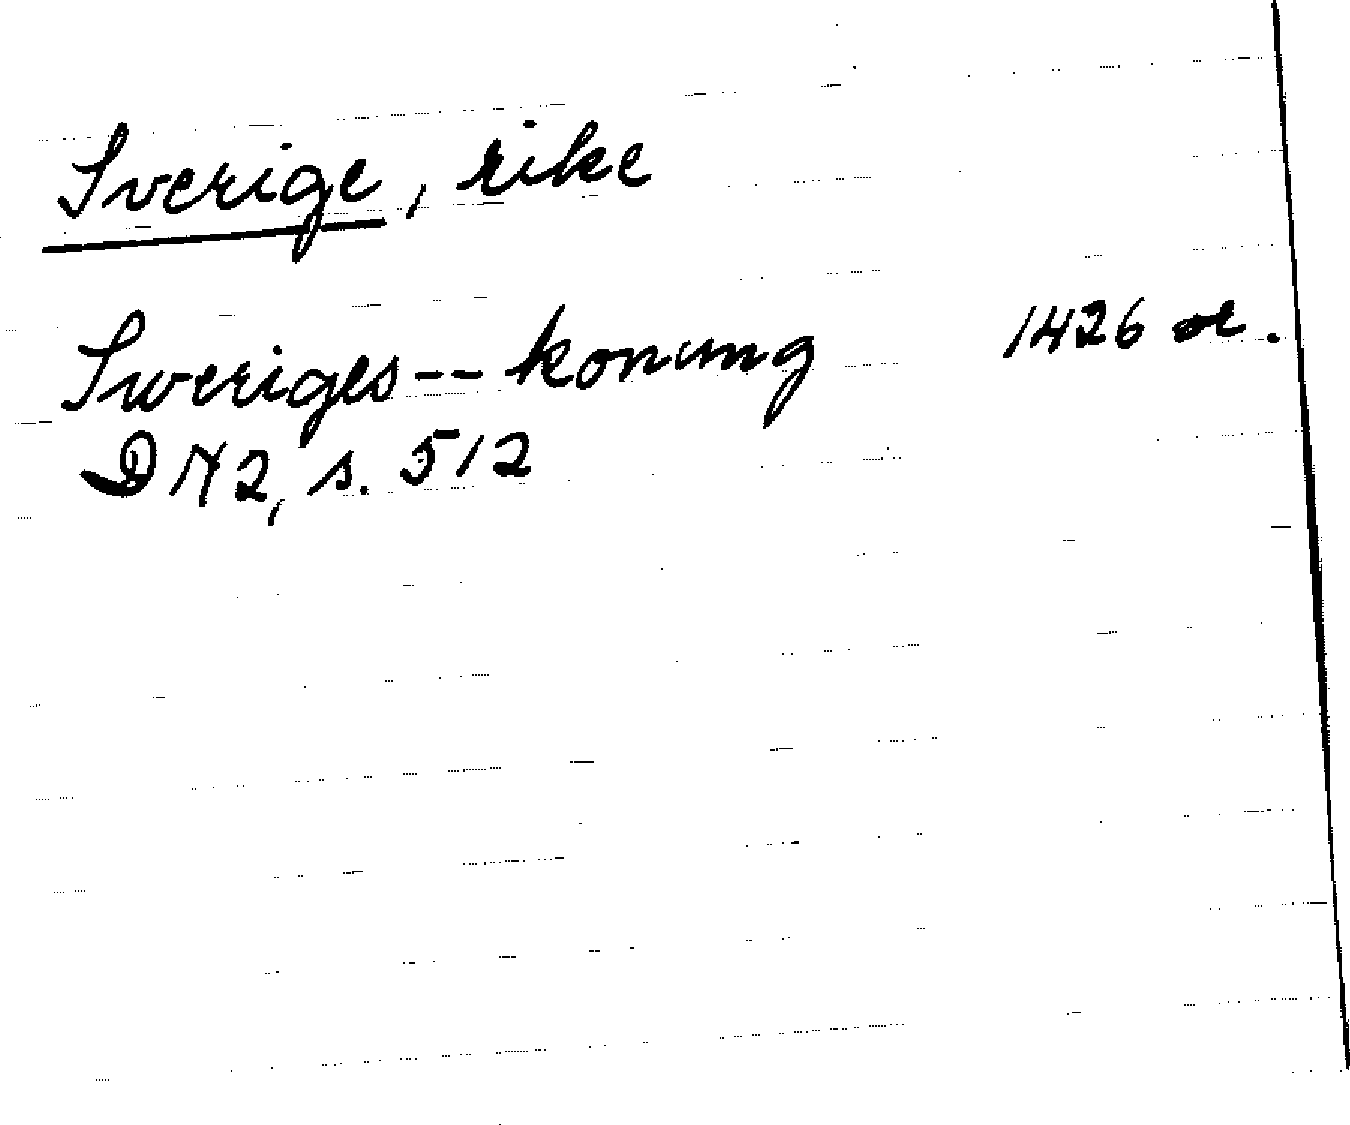 Sverige, rike
Sweriges -- konung 1426 or.
D N 2, s. 512